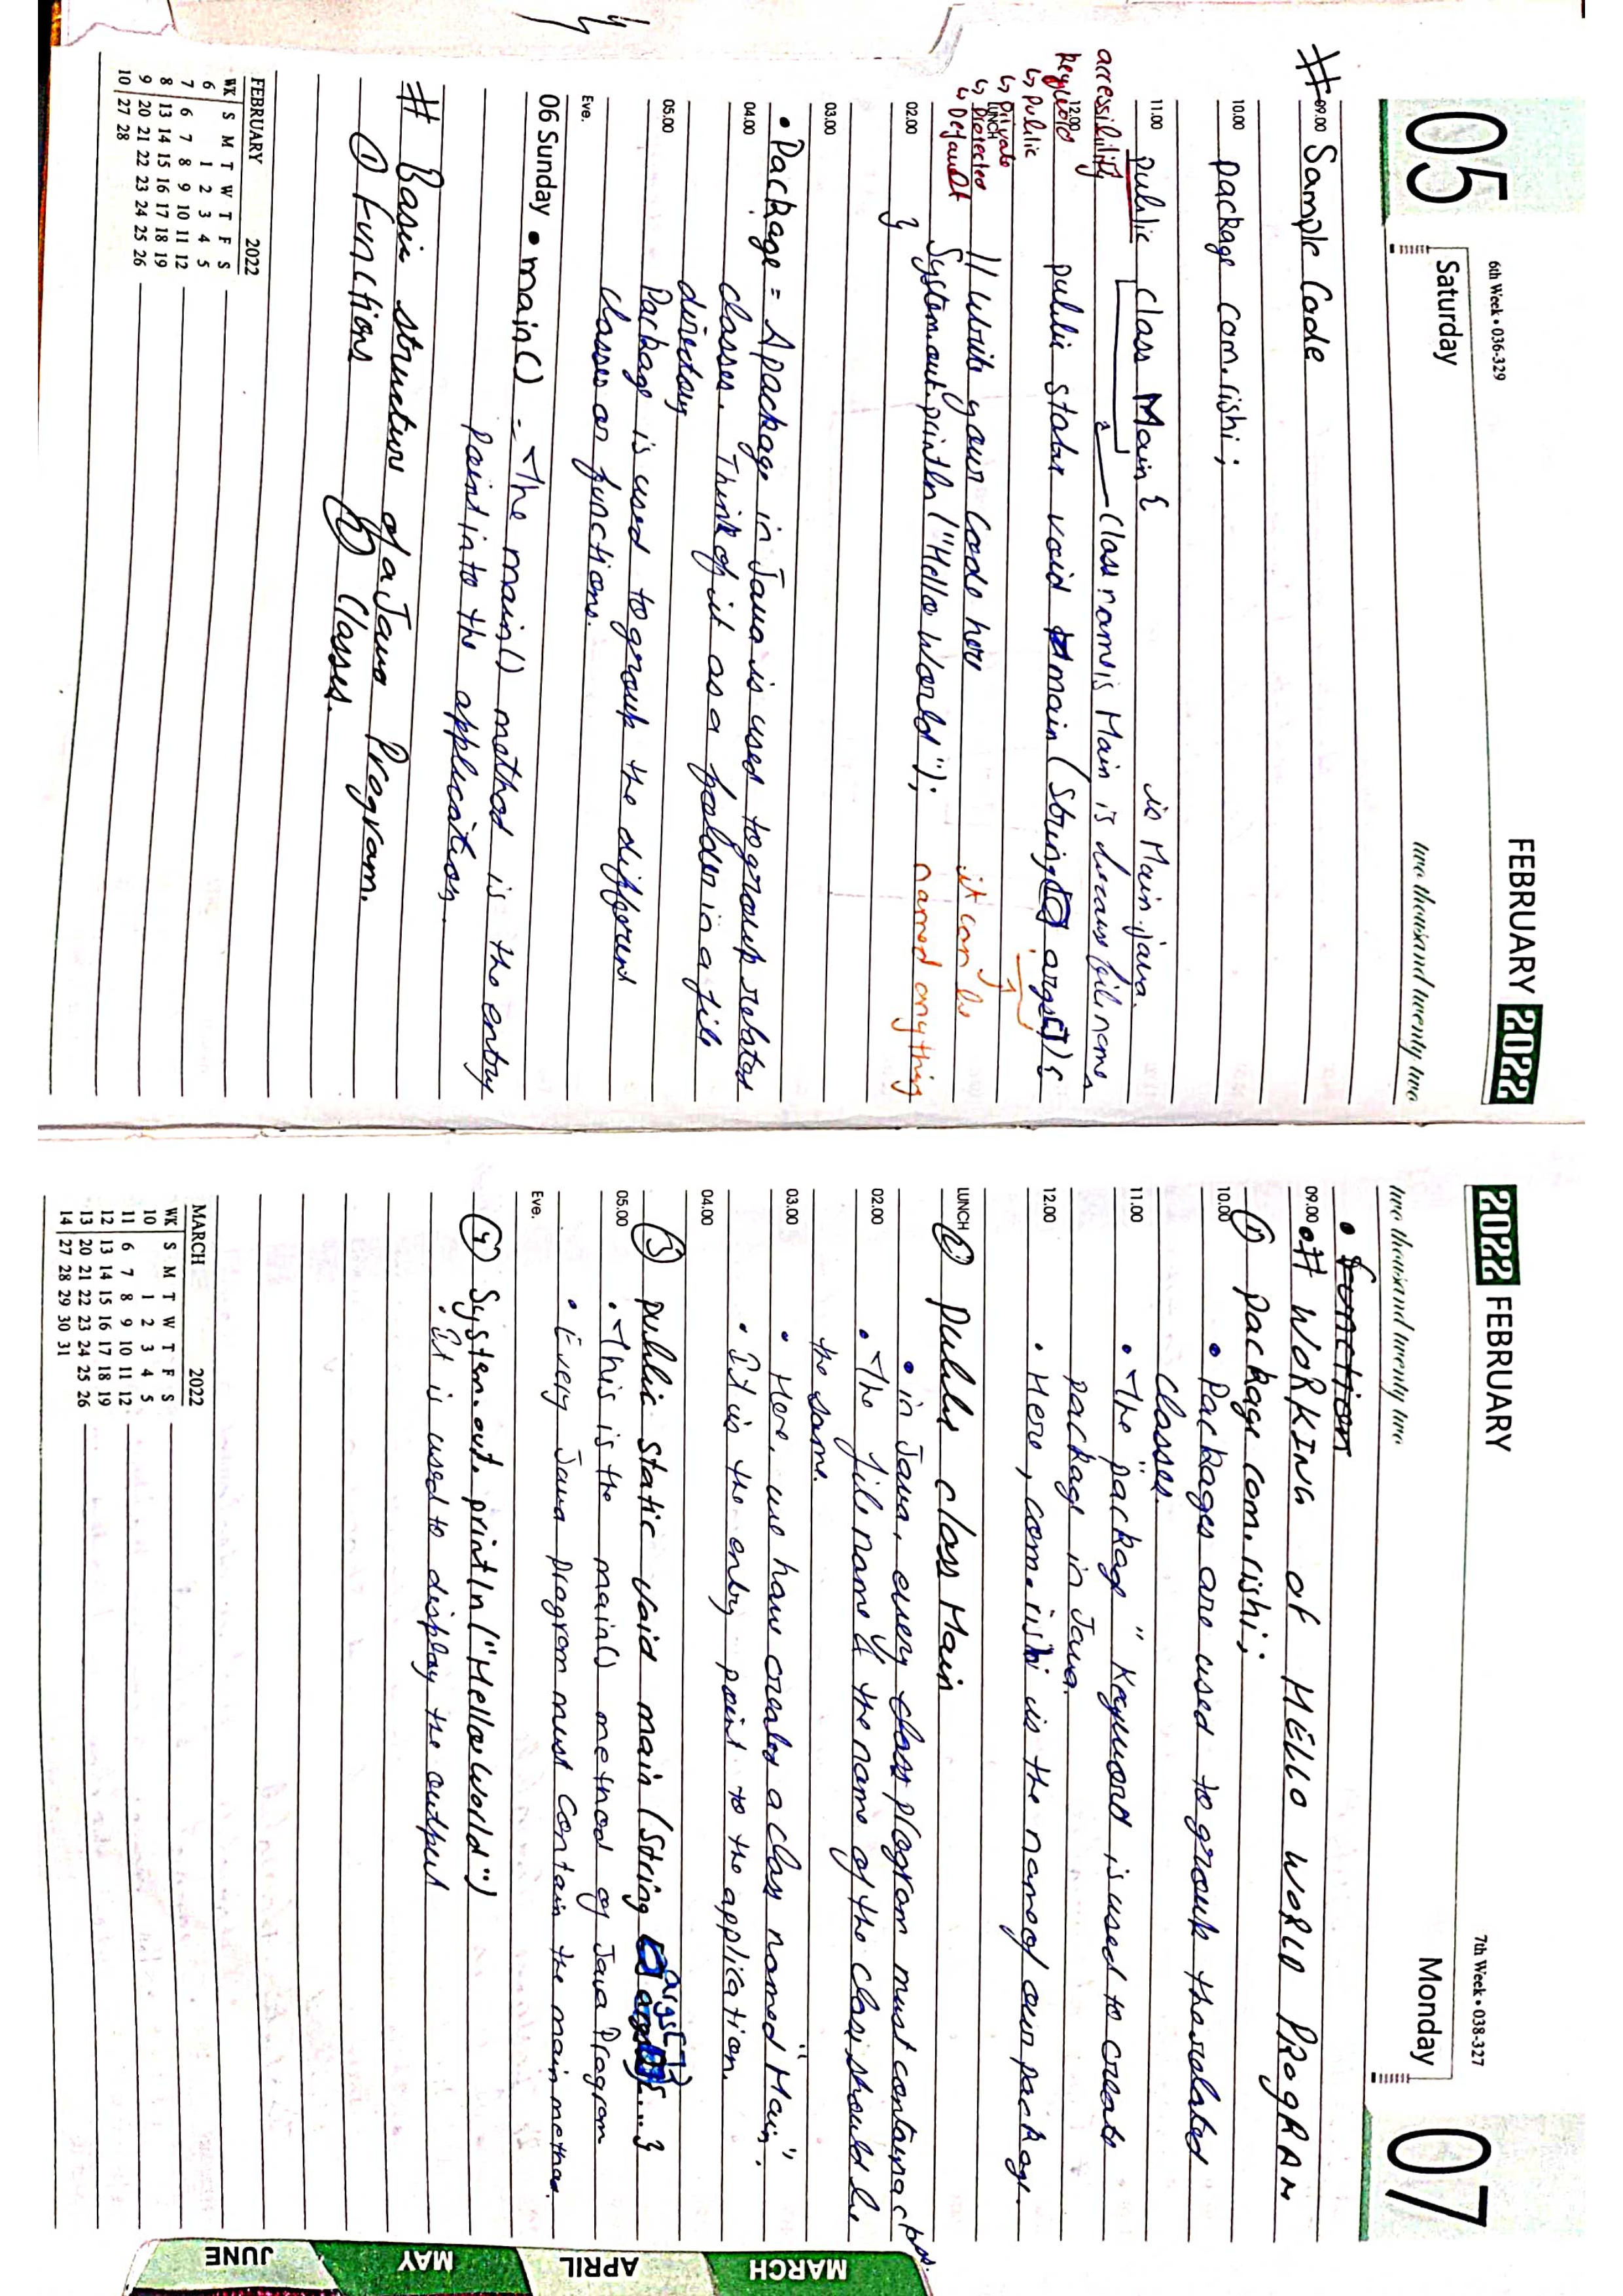 05
6th Week • 036-329
FEBRUARY 2022
Saturday
two thousand twenty two
# 09.00 Sample Code
10.00 package com.rishi;
11.00 public class Main { is Main.java.
accessibility Class name is Main is because file name
keyword
12.00 public static void main (String args[]) {
↳ Public
↳ Private
LUNCH
↳ Protected // Write your Code here it can be
↳ Default
System.out.println ("Hello World"); named anything
02.00 }
03.00
• Package = A package in Java is used to group related
04.00 classes. Think of it as a foolder in a file
directory
05.00 Package is used to group the different
classes or functions.
Eve.
06 Sunday • main() - The main() method is the entry
Point into the application.
# Basic structure of a Java Program.
① Functions ② Classes.
FEBRUARY 2022
WK S M T W T F S
6 1 2 3 4 5
7 6 7 8 9 10 11 12
8 13 14 15 16 17 18 19
9 20 21 22 23 24 25 26
10 27 28
2022 FEBRUARY
7th Week • 038-327
07
Monday
two thousand twenty two
• function
09.00 • # WORKING of HELLO WORLD PROgRAM
① package com.rishi;
10.00 • Packages are used to group the related
classes.
11.00 • The "package" Keyword is used to create
package in Java.
12.00 • Here, com.rishi is the name of our package.
LUNCH ② public class Main
• in Java, every class program must contain a class.
02.00 • The file name & the name of the class should be
the same.
03.00 • Here, we have created a class named "Main".
• It is the entry point to the application.
04.00
③ public static void main (String args[]){...}
05.00 • This is the main() method of Java Program
• Every Java program must Contain the main method.
Eve.
④ System.out.println("Hello World")
• It is used to display the output
MARCH 2022
WK S M T W T F S
10 1 2 3 4 5
11 6 7 8 9 10 11 12
12 13 14 15 16 17 18 19
13 20 21 22 23 24 25 26
14 27 28 29 30 31
MARCH
APRIL
MAY
JUNE